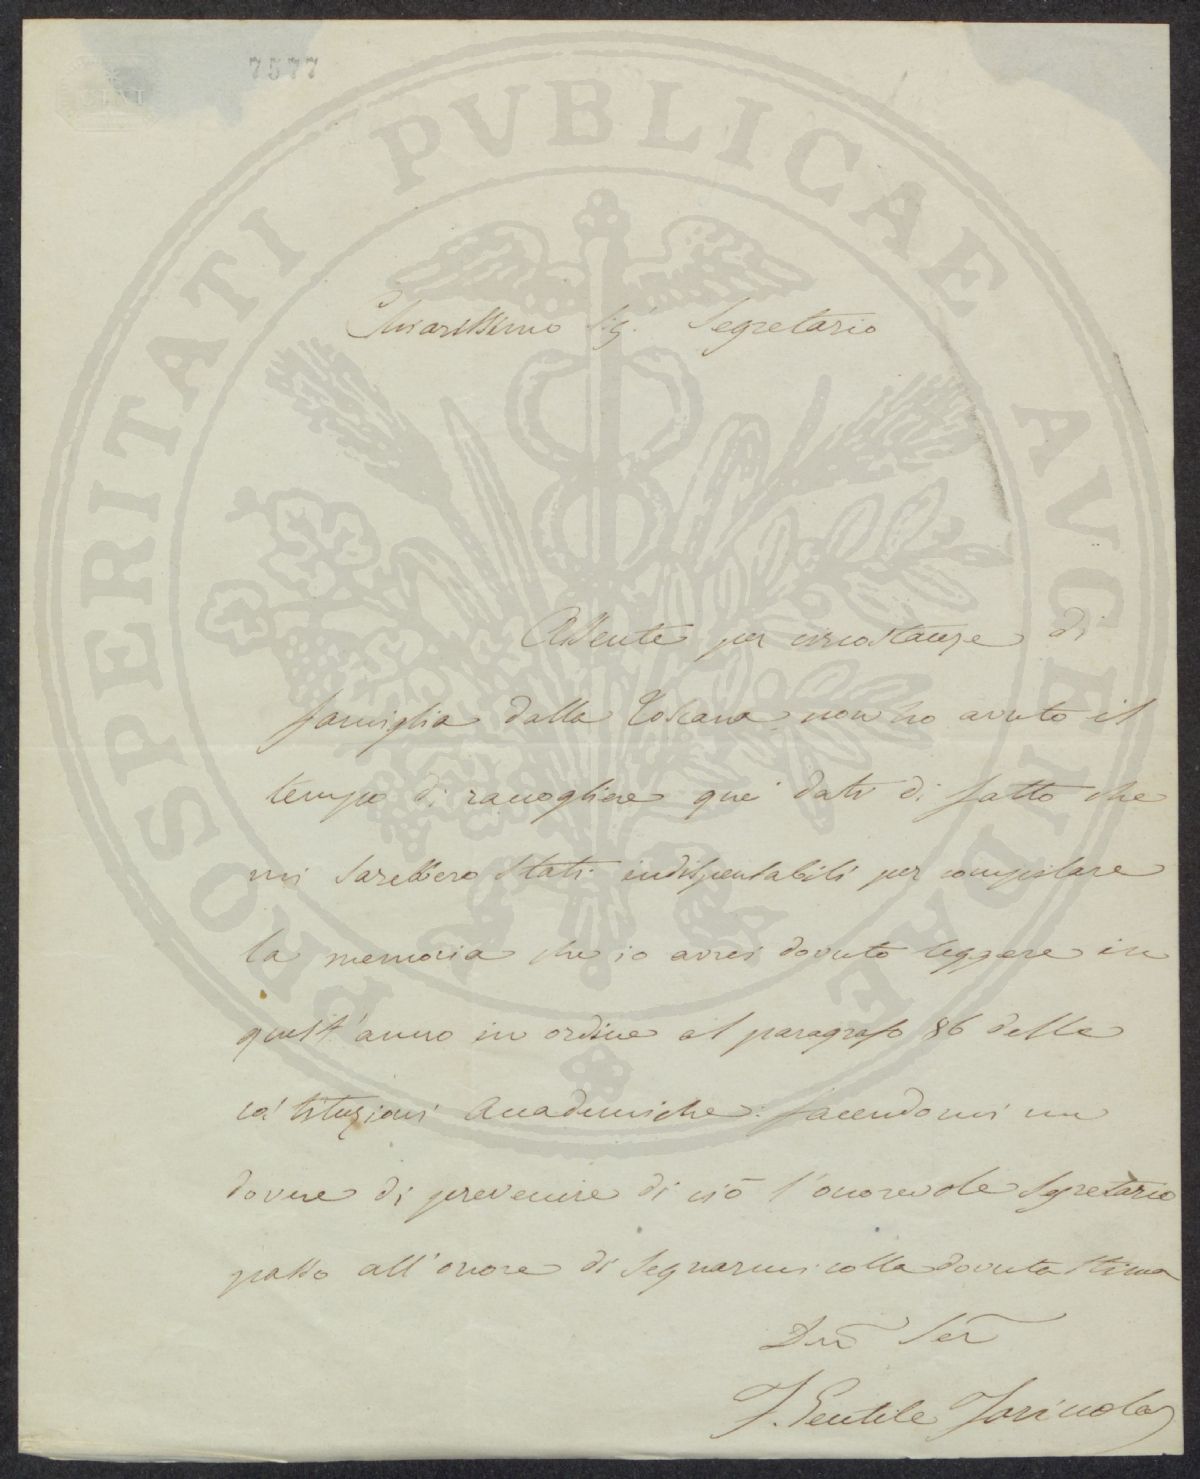 7577
PROSPERITATI PVBLICAE AVGENDAE
Chiarissimo Sigr. Segretario
Assente per circostanze di
famiglia dalla Toscana non ho avuto il
tempo di raccogliere quei dati di fatto che
mi sarebbero stati indispensabili per compilare
la memoria che io avrei dovuto leggere in
quest'anno in ordine al paragrafo 86 delle
costituzioni Accademiche: facendomi un
dovere di prevenire di ciò l'onorevole Segretario
passo all'onore di segnarmi colla dovuta stima
F. Gentile Farinola